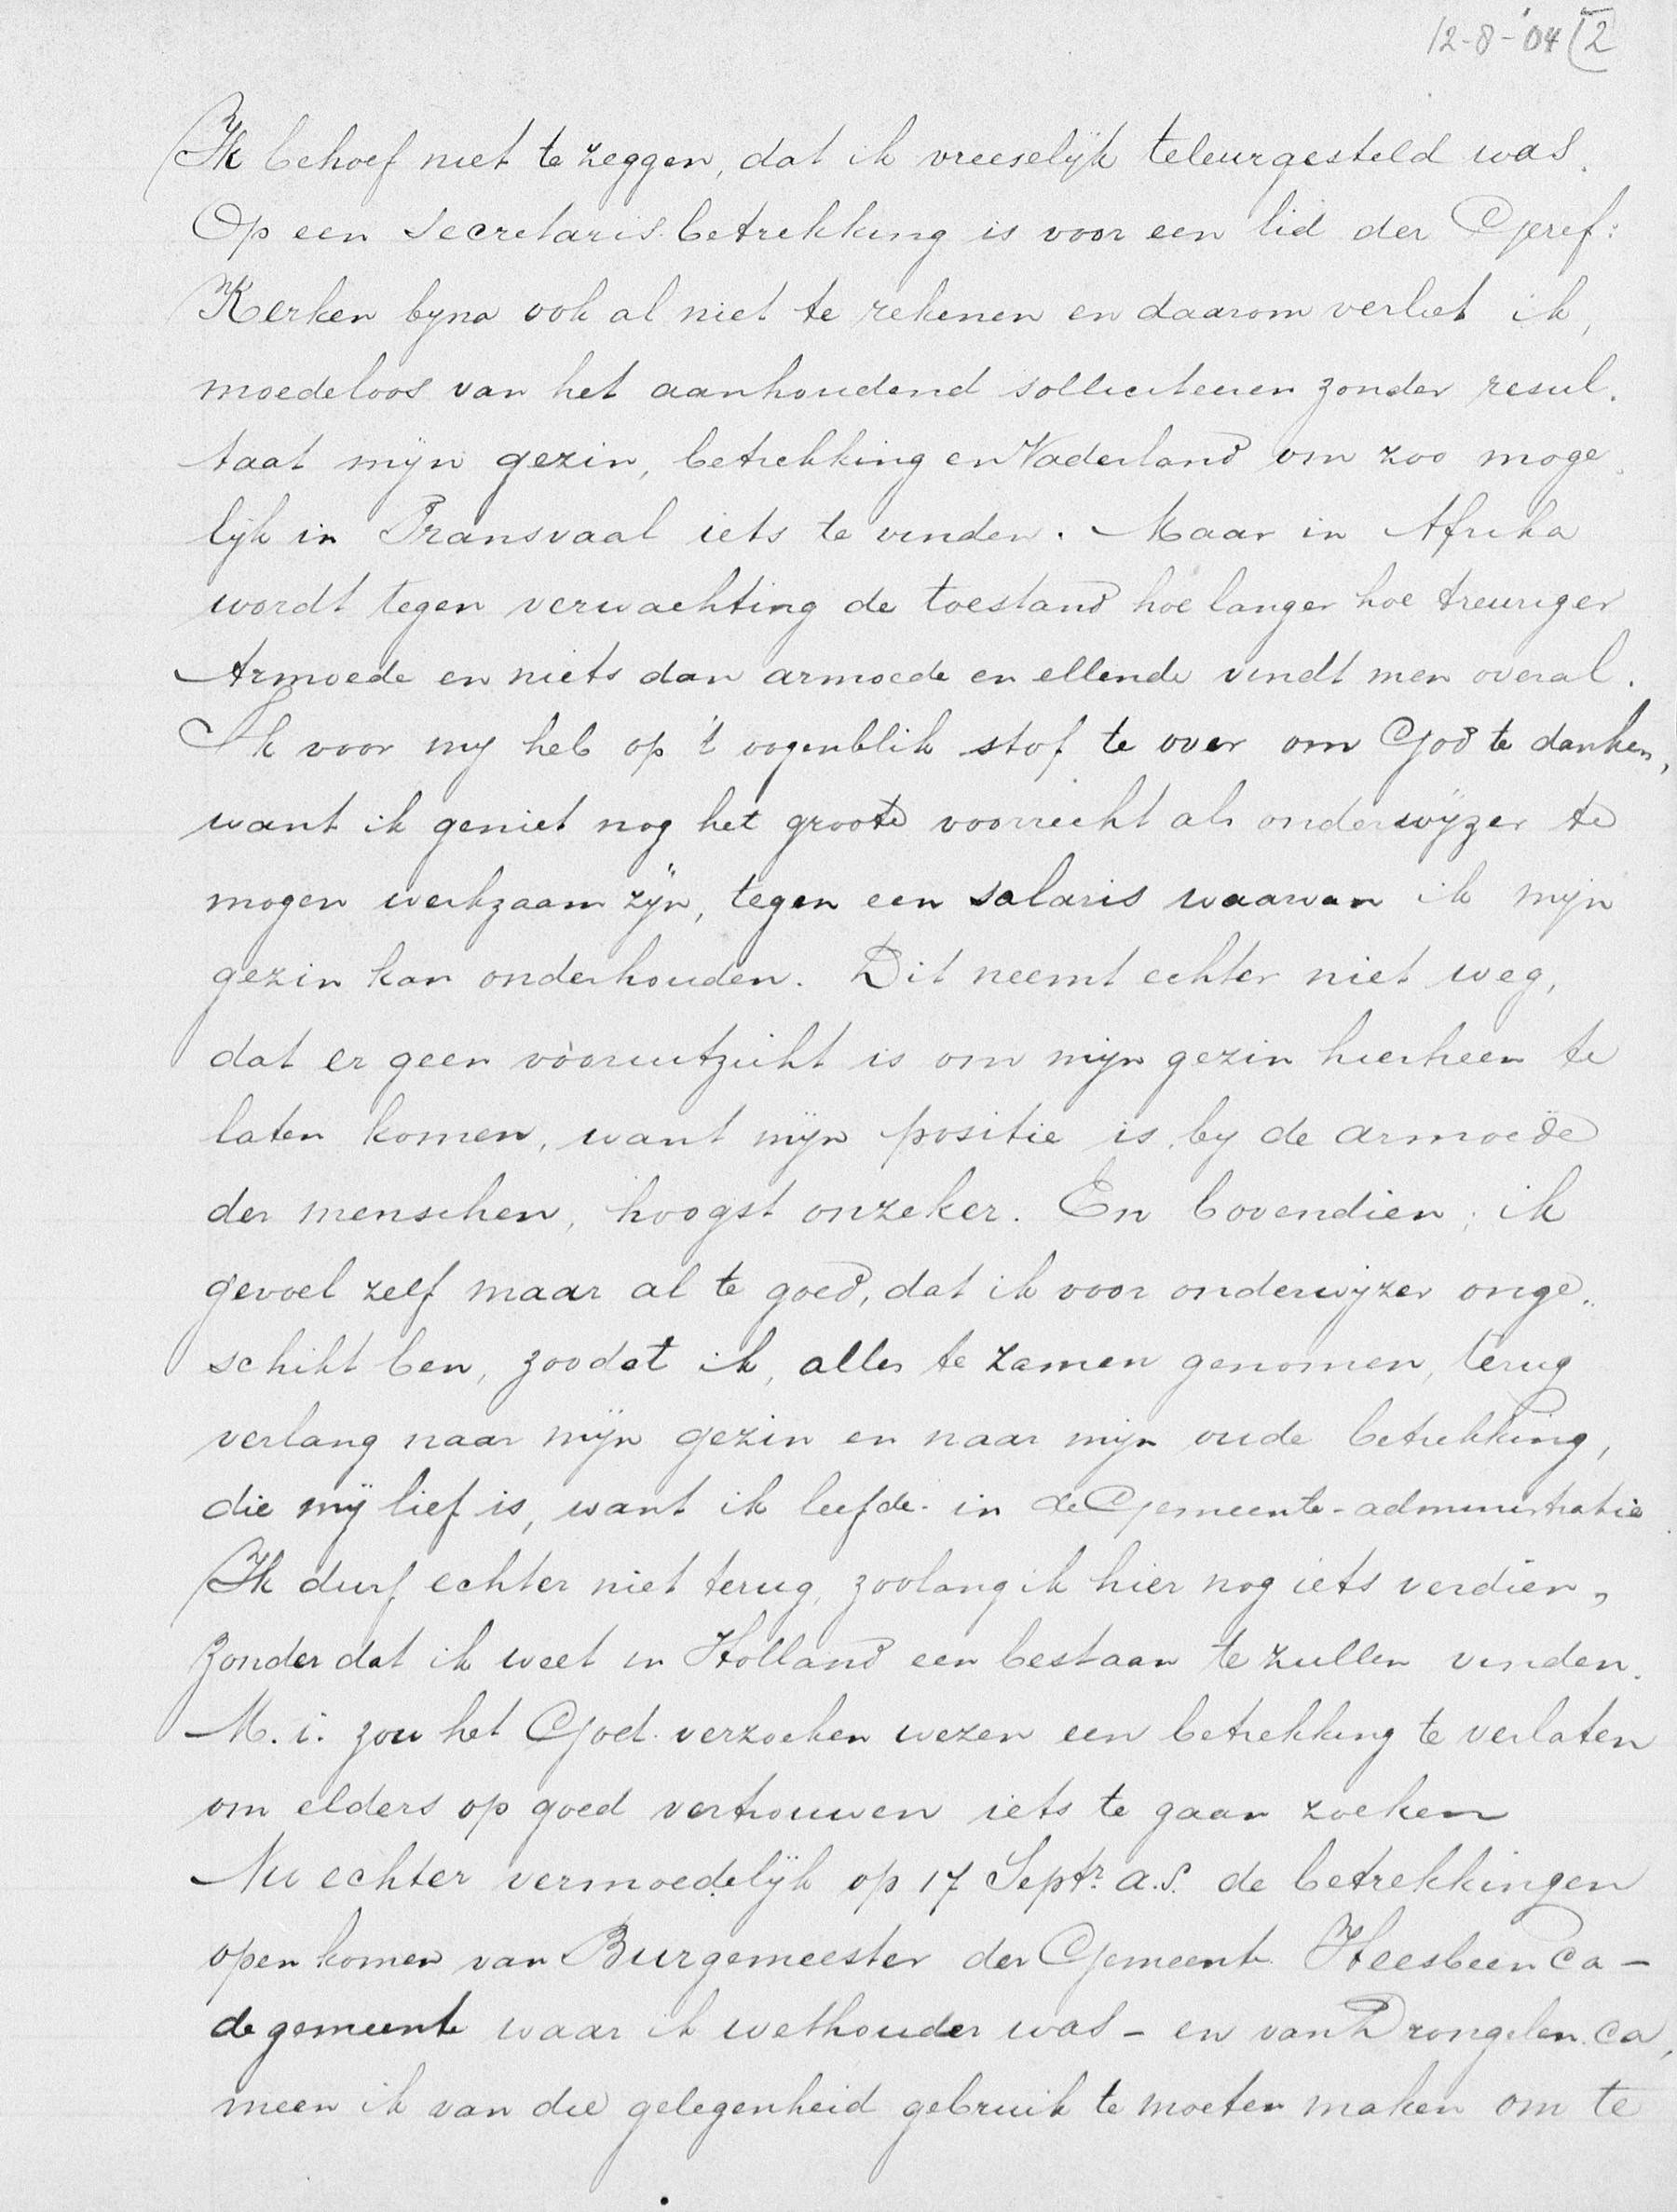 12-8-'04 2
Ik behoef niet te zeggen, dat ik vreeselijk teleurgesteld was.
Op een Secretaris.betrekking is voor een lid der Geref:
Kerken byna ook al niet te rekenen en daarom verliet ik,
moedeloos van het aanhoudend solliciteeren zonder resul-
taat mijn gezin, betrekking en Vaderland om zoo moge-
lijk in Transvaal iets te vinden. Maar in Afrika
wordt tegen verwachting de toestand hoe langer hoe treuriger
Armoede en niets dan armoede en ellende vindt men overal.
Ik voor my heb op 't oogenblik stof te over om God te danken,
want ik geniet nog het groote voorrecht als onderwijzer te
mogen werkzaam zijn, tegen een salaris waarvan ik mijn
gezin kan onderhouden. Dit neemt echter niet weg,
dat er geen vooruitzicht is om mijn gezin hierheen te
laten komen, want mijn positie is, by de armoede
der menschen, hoogst onzeker. En bovendien; ik
gevoel zelf maar al te goed, dat ik voor onderwijzer onge-
schikt ben, zoodat ik, alles te zamen genomen, terug
verlang naar mijn gezin en naar mijn oude betrekking,
die mij lief is, want ik leefde in de Gemeente-administratie
Ik durf echter niet terug, zoolang ik hier nog iets verdien,
zonder dat ik weet in Holland een bestaan te zullen vinden.
M.i. zou het God verzoeken wezen een betrekking te verlaten
om elders op goed vertrouwen iets te gaan zoeken
Nu echter vermoedelijk op 17 Septr. a.s. de betrekkingen
open komen van Burgemeester der Gemeente Heesbeen ca -
de gemeente waar ik wethouder was - en van Drongelen ca,
meen ik van die gelegenheid gebruik te moeten maken om te